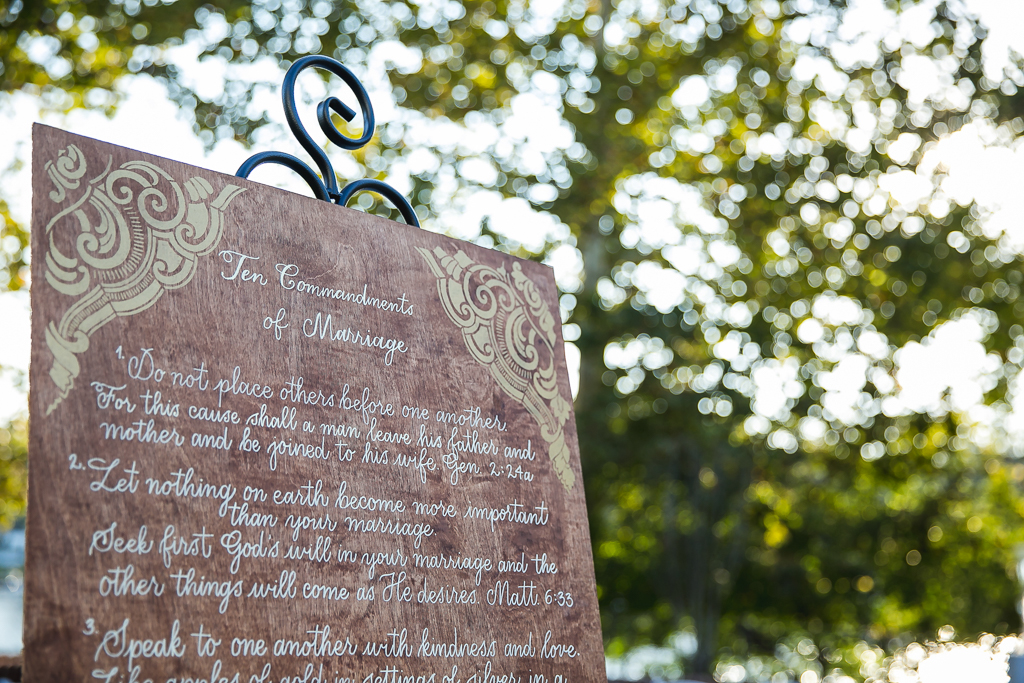 Ten Commandments
of Marriage
1. Do not place others before one another.
For this cause shall a man leave his father and
mother and be joined to his wife. Gen. 2:24a
2. Let nothing on earth become more important
than your marriage.
Seek first God's will in your marriage and the
other things will come as He desires. Matt. 6:33
3. Speak to one another with kindness and love.
Like apples of gold in settings of silver in a